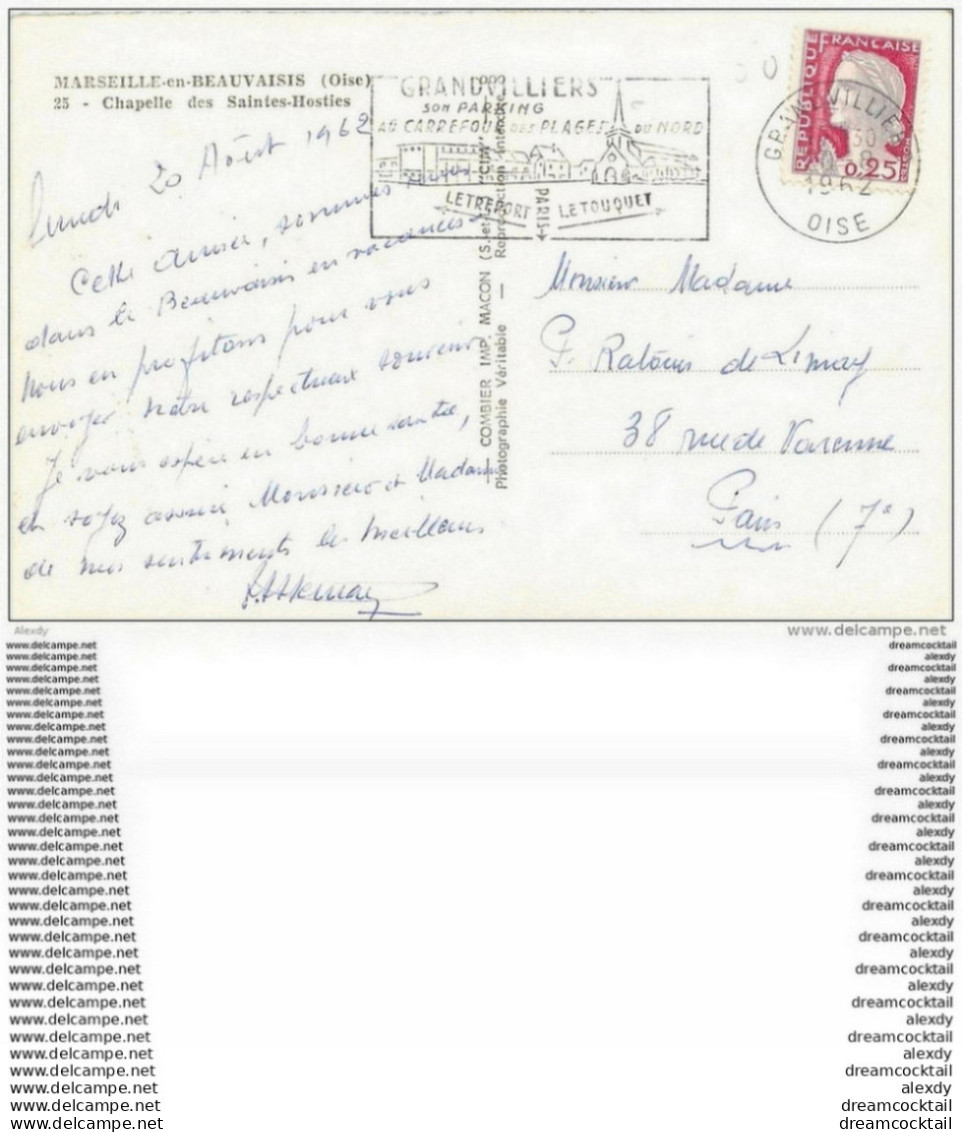 MARSEILLE-en-BEAUVAISIS (Oise)
25 - Chapelle des Saintes-Hosties
GRANDVILLIERS
SON PARKING
AU CARREFOUR DES PLAGES DU NORD
LE TREPORT LE TOUQUET
PARIS
REPUBLIQUE FRANCAISE
0,25
GRANDVILLIERS
30
1962
OISE
Lundi 20 Août 1962
Cette année, sommes
dans le Beauvaisis en vacances
Nous en profitons pour vous
envoyer notre respectueux souvenir
Je vous espère en bonne santée,
et soyez assuré Monsieur et Madame
de mes sentiments les meilleurs
COMBIER IMP. MACON (S.-et-L.) "CIM"
Photographie Véritable — Reproduction interdite
Monsieur Madame
P. Ratouis de Limay
38 rue de Varenne
Paris (7e)
Alexdy
www.delcampe.net
www.delcampe.net dreamcocktail
www.delcampe.net alexdy
www.delcampe.net dreamcocktail
www.delcampe.net alexdy
www.delcampe.net dreamcocktail
www.delcampe.net alexdy
www.delcampe.net dreamcocktail
www.delcampe.net alexdy
www.delcampe.net dreamcocktail
www.delcampe.net alexdy
www.delcampe.net dreamcocktail
www.delcampe.net alexdy
www.delcampe.net dreamcocktail
www.delcampe.net alexdy
www.delcampe.net dreamcocktail
www.delcampe.net alexdy
www.delcampe.net dreamcocktail
www.delcampe.net alexdy
www.delcampe.net dreamcocktail
www.delcampe.net alexdy
www.delcampe.net dreamcocktail
www.delcampe.net alexdy
www.delcampe.net dreamcocktail
www.delcampe.net alexdy
www.delcampe.net dreamcocktail
www.delcampe.net alexdy
www.delcampe.net dreamcocktail
www.delcampe.net alexdy
www.delcampe.net dreamcocktail
www.delcampe.net alexdy
www.delcampe.net dreamcocktail
www.delcampe.net alexdy
www.delcampe.net dreamcocktail
www.delcampe.net dreamcocktail